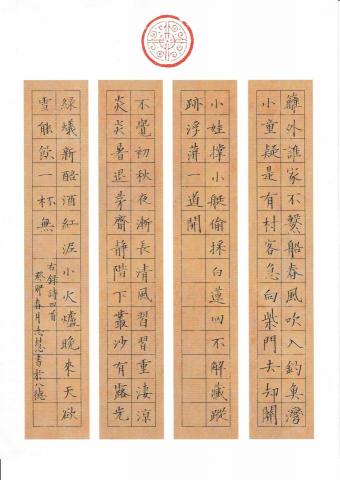 籬外誰家不繫船春風吹入釣魚灣
小童疑是有村客急向柴門去却關
小娃撑小艇偷採白蓮回不解藏蹤
跡浮萍一道開
不覺初秋夜漸長清風習習重淒涼
炎炎暑退茅齋靜階下叢沙有露光
綠蟻新醅酒紅泥小火爐晚來天欲
雪能飲一杯無
右錄詩四首
癸卯春月志慧書於八德